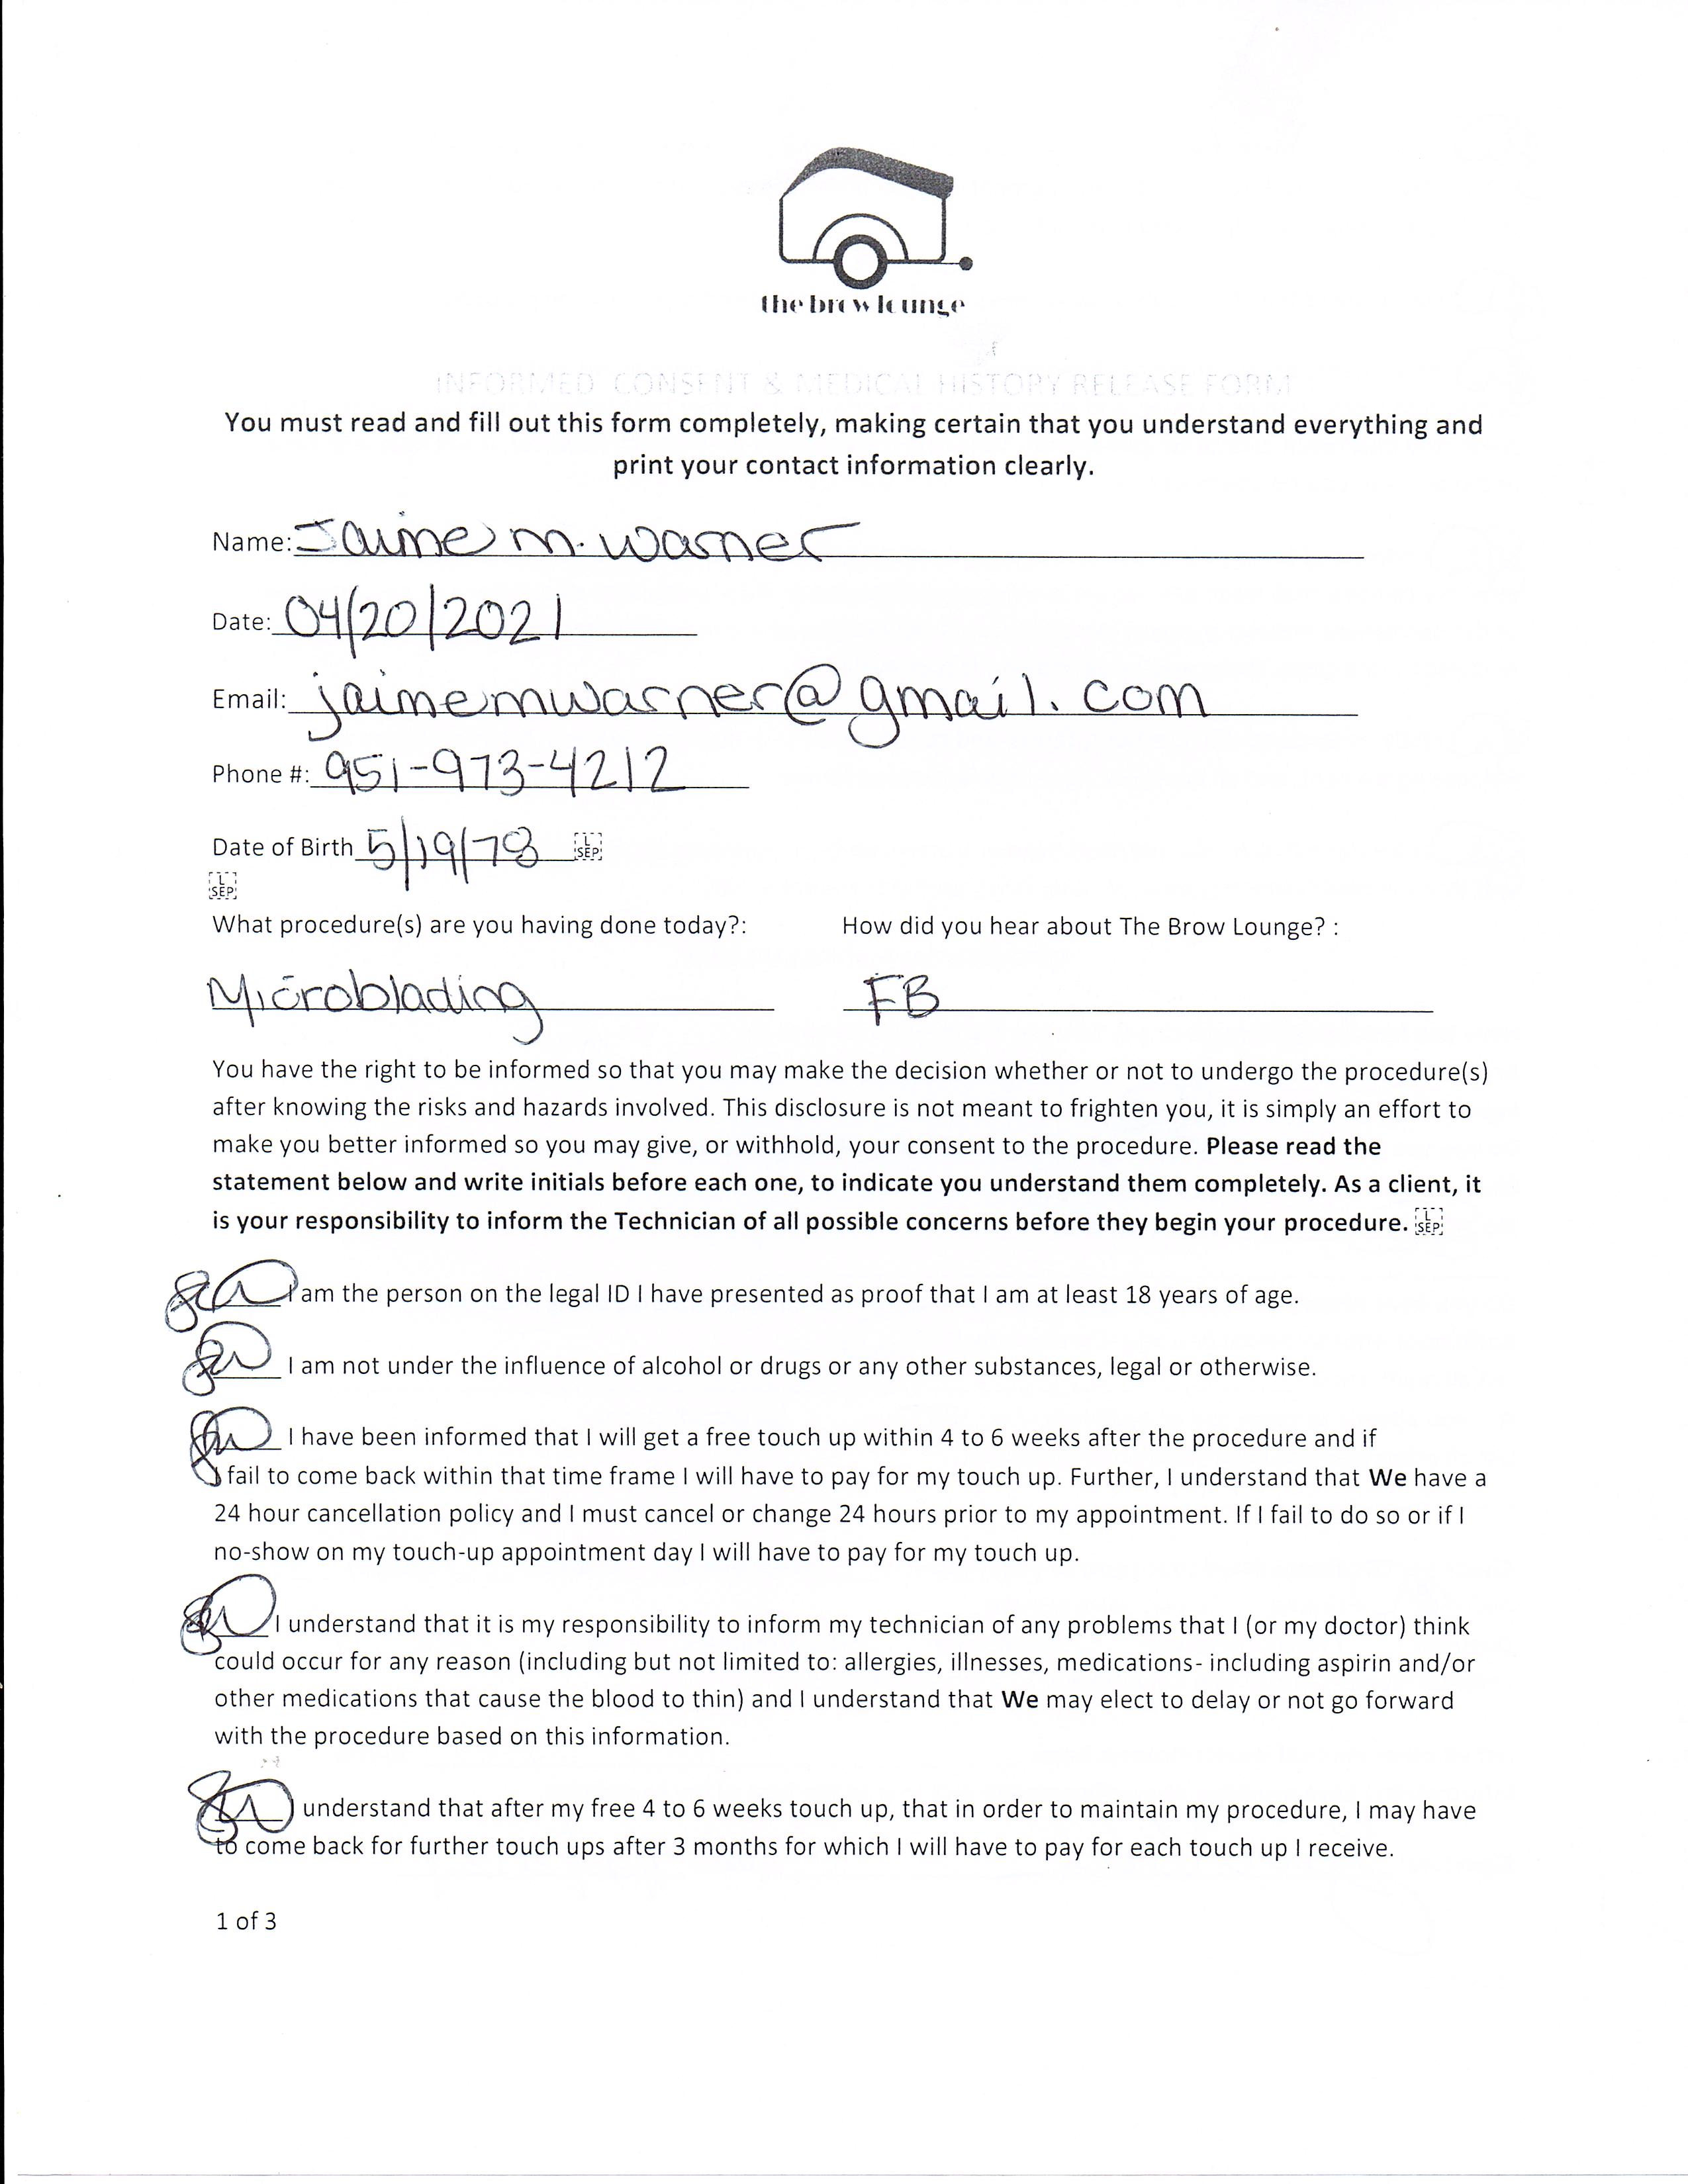 the brow lounge
INFORMED CONSENT & MEDICAL HISTORY RELEASE FORM
You must read and fill out this form completely, making certain that you understand everything and
print your contact information clearly.
Name: Jaime M. Warner
Date: 04/20/2021
Email: jaimemwarner@gmail.com
Phone #: 951-973-4212
Date of Birth 5/19/78 L SEP
L SEP
What procedure(s) are you having done today?: How did you hear about The Brow Lounge? :
Microblading FB
You have the right to be informed so that you may make the decision whether or not to undergo the procedure(s)
after knowing the risks and hazards involved. This disclosure is not meant to frighten you, it is simply an effort to
make you better informed so you may give, or withhold, your consent to the procedure. Please read the
statement below and write initials before each one, to indicate you understand them completely. As a client, it
is your responsibility to inform the Technician of all possible concerns before they begin your procedure. L SEP
I am the person on the legal ID I have presented as proof that I am at least 18 years of age.
I am not under the influence of alcohol or drugs or any other substances, legal or otherwise.
I have been informed that I will get a free touch up within 4 to 6 weeks after the procedure and if
fail to come back within that time frame I will have to pay for my touch up. Further, I understand that We have a
24 hour cancellation policy and I must cancel or change 24 hours prior to my appointment. If I fail to do so or if I
no-show on my touch-up appointment day I will have to pay for my touch up.
I understand that it is my responsibility to inform my technician of any problems that I (or my doctor) think
could occur for any reason (including but not limited to: allergies, illnesses, medications- including aspirin and/or
other medications that cause the blood to thin) and I understand that We may elect to delay or not go forward
with the procedure based on this information.
understand that after my free 4 to 6 weeks touch up, that in order to maintain my procedure, I may have
to come back for further touch ups after 3 months for which I will have to pay for each touch up I receive.
1 of 3